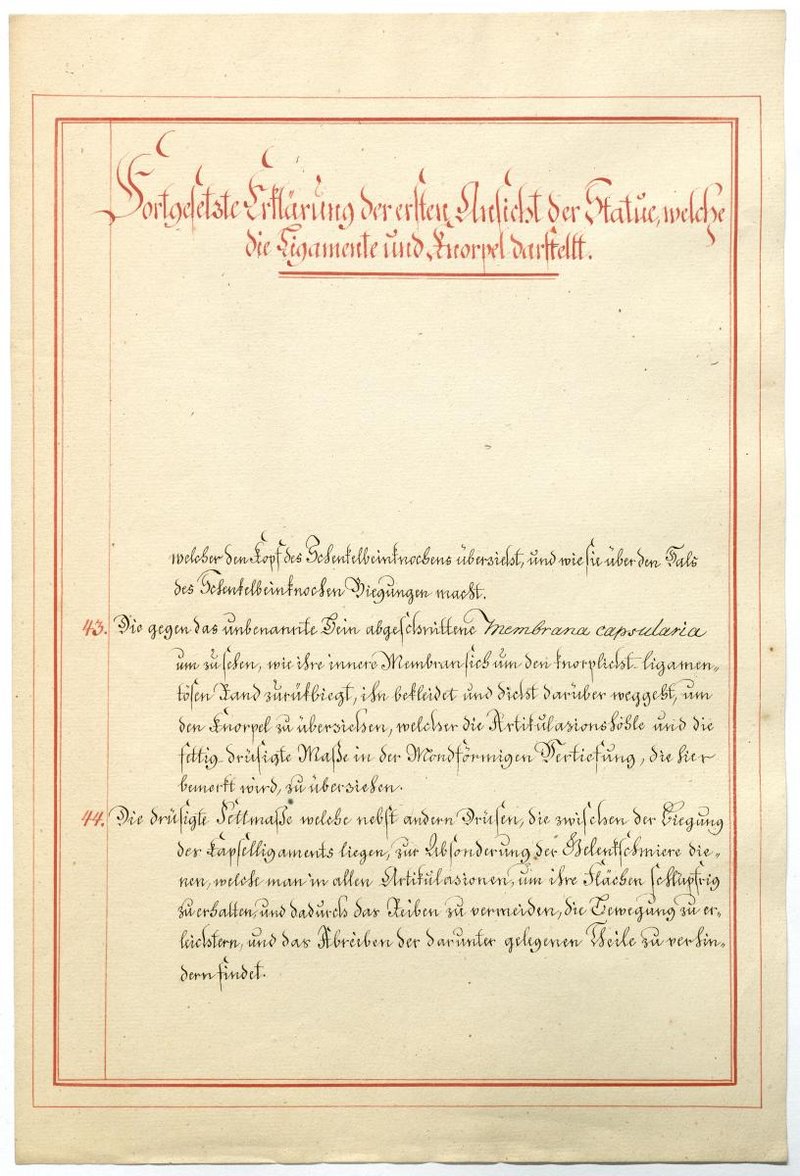 Fortgesetzte Erklärung der ersten Ansicht der Statue, welche
die Ligamente und Knorpel darstellt.
welcher den Kopf des Schenkelbeinknochens überzieht, und wie sie über den Hals
des Schenkelbeinknochen Biegungen macht.
43. Die gegen das unbenannte Bein abgeschnittene Membrana capsularia
um zu sehen, wie ihre innere Membran sich um den knorplicht-ligamen-
tösen Rand zurükbiegt, ihn bekleidet und dicht darüber weggeht, um
den Knorpel zu überziehen, welcher die Artikulazionshöhle und die
fettig-drüsigte Maße in der Mondförmigen Vertiefung, die hier
bemerkt wird, zu überziehen.
44. Die drüsigte Fettmaße welche nebst andern Drüsen, die zwischen der Biegung
der Kapselligaments liegen, zur Absonderung der Gelenkschmiere die-
nen, welche man in allen Artikulazionen, um ihre Flächen schlüpfrig
zu erhalten, und dadurch das Reiben zu vermeiden, die Bewegung zu er-
leichtern, und das Abreiben der darunter gelegenen Theile zu verhin-
dern findet.